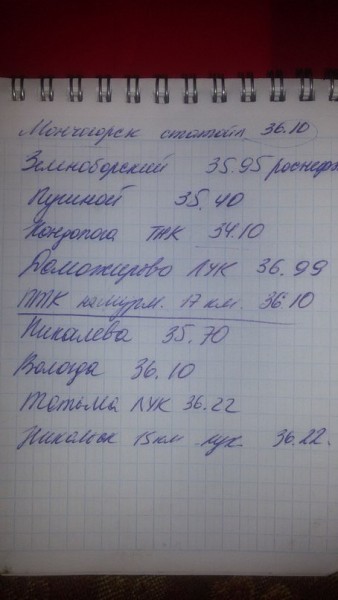 Мончегорск статойл 36.10
Зеленоборский 35.95 роснефт
Пушной 35.40
Кондопога ТНК 34.10
Доможирово ЛУК 36.99
ПТК на мурм. 17 км. 36.10
Пикалева 35.70
Вологда 36.10
Татьма ЛУК 36.22
Никольск 15 км лук. 36.22.